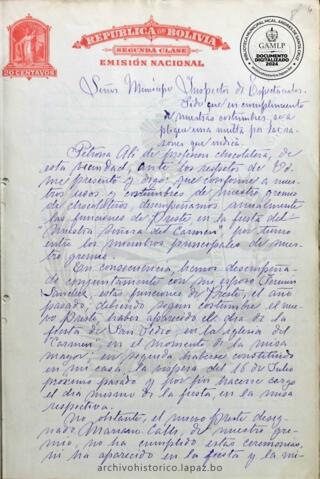 REPUBLICA DE BOLIVIA
SEGUNDA CLASE
EMISIÓN NACIONAL
50 CENTAVOS
GAMLP
DOCUMENTO
DIGITALIZADO
2024
Señor Munícipe Inspector de Espectáculos.
Pide que en cumplimiento
de nuestras costumbres, se a
plique una multa por las ra
zones que indica.
Petrona Ali de profesion chocolatera, de
esta vecindad, ante los respetos de Ud.
me presento y digo: que conforme a nues
tros usos y costumbres de nuestro gremio
de chocolateros, desempeñamos anualmente
las funciones de Preste en la fiesta del
"Nuestra Señora del Carmen", por turno
entre los miembros principales de nues
tro gremio.
En consecuencia, hemos desempeña-
do conjuntamente con mi esposo
Sanchez, estas funciones de Preste, el año
pasado, debiendo segun costumbre el nue
vo Preste, haber aparecido el dia de la
fiesta de San Pedro, en la iglesia del
"Carmen", en el momento de la misa
mayor; en seguida haberse constituido
en mi casa, la vispera del 16 de Julio
proximo pasado y por fin hacerse cargo
el dia mismo de la fiesta, en la misa
respectiva.
No obstante, el nuevo Preste desig
nado Mariano, de nuestro gre-
mio, no ha cumplido estas ceremonias,
ni ha aparecido en la fiesta y la mi-
archivohistorico.lapaz.bo